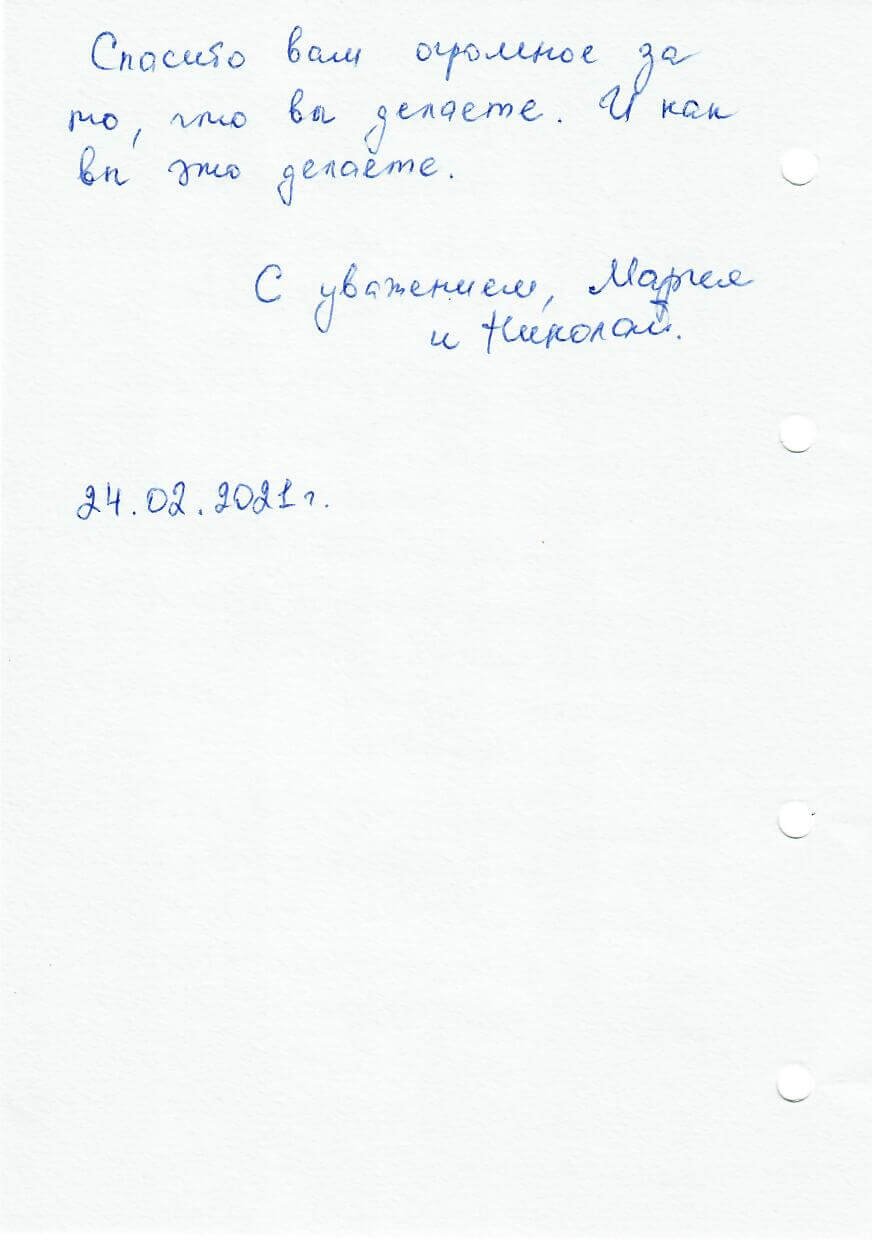 Спасибо вам огромное за
то, что вы делаете. И как
вы это делаете.
С уважением, Мария
и Николай.
24.02.2021г.